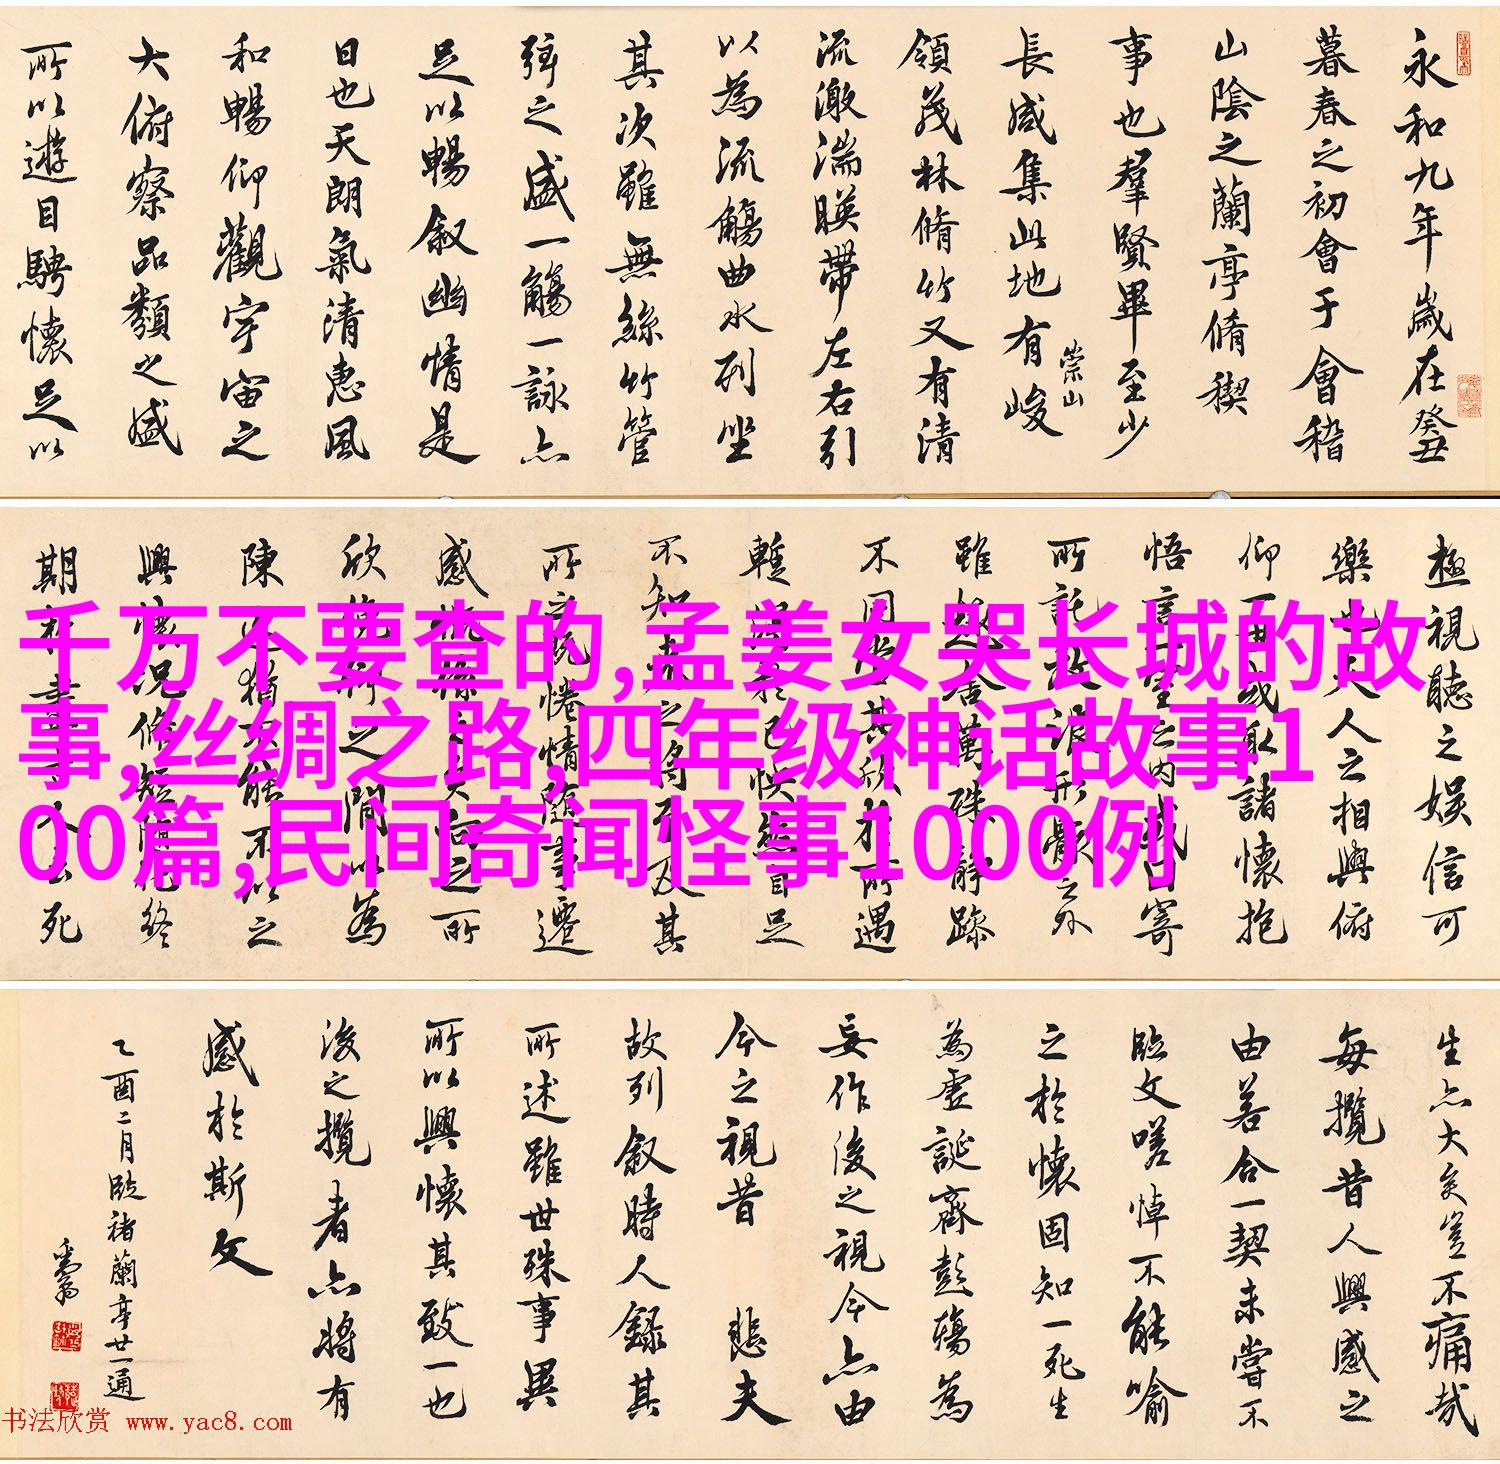 永和九年歲在癸丑
暮春之初會于會稽
山陰之蘭亭脩稧
事也羣賢畢至少
長咸集此地有峻
崇山
領茂林脩竹又有清
流激湍暎帶左右引
以為流觴曲水列坐
其次雖無絲竹管
弦之盛一觴一詠亦
足以暢叙幽情是
日也天朗氣清惠風
和暢仰觀宇宙之
大俯察品類之盛
所以遊目騁懷足以
極視聽之娛信可
樂也夫人之相與俯
仰一世或取諸懷抱
悟言一室之內或寄
所託放浪形骸之外
雖趣舍萬殊靜躁
不同當其欣於所遇
暫得於己快然自足
不知老之將至及其
所之既惓情隨事遷
感慨係之矣向之所
欣俛仰之間以為
陳迹猶不能不以之
興懷況脩短隨化終
期於盡古人云死
千万不要查的,孟姜女哭长城的故
事,丝绸之路,四年级神话故事1
00篇,民间奇闻怪事1000例
生亦大矣豈不痛哉
每攬昔人興感之
由若合一契未嘗不
臨文嗟悼不能喻
之於懷固知一死生
為虛誕齊彭殤為
妄作後之視今亦由
今之視昔 悲夫
故列叙時人錄其
所述雖世殊事異
所以興懷其致一也
後之攬者亦將有
感於斯文
乙酉二月臨褚蘭亭廿一通
书法欣赏 www.yac8.com